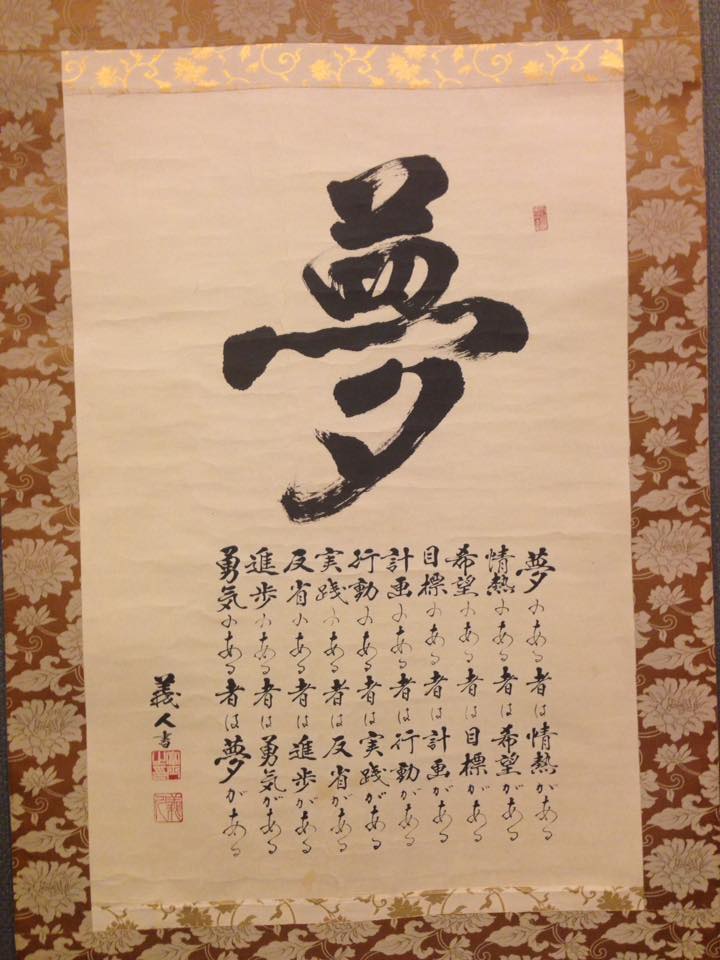 夢
夢のある者は情熱がある
情熱のある者は希望がある
希望のある者は目標がある
目標のある者は計画がある
計画のある者は行動がある
行動のある者は実践がある
実践のある者は反省がある
反省のある者は進歩がある
進歩のある者は勇気がある
勇気のある者は夢がある
義人書